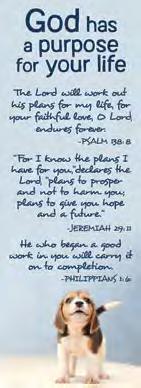 God has
a purpose
for your life
The Lord will work out
his plans for my life, for
your faithful love, O Lord,
endures forever.
-PSALM 138:8
"For I know the plans I
have for you," declares the
Lord, "plans to prosper
and not to harm you,
plans to give you hope
and a future."
-JEREMIAH 29:11
He who began a good
work in you will carry it
on to completion.
-PHILIPPIANS 1:6